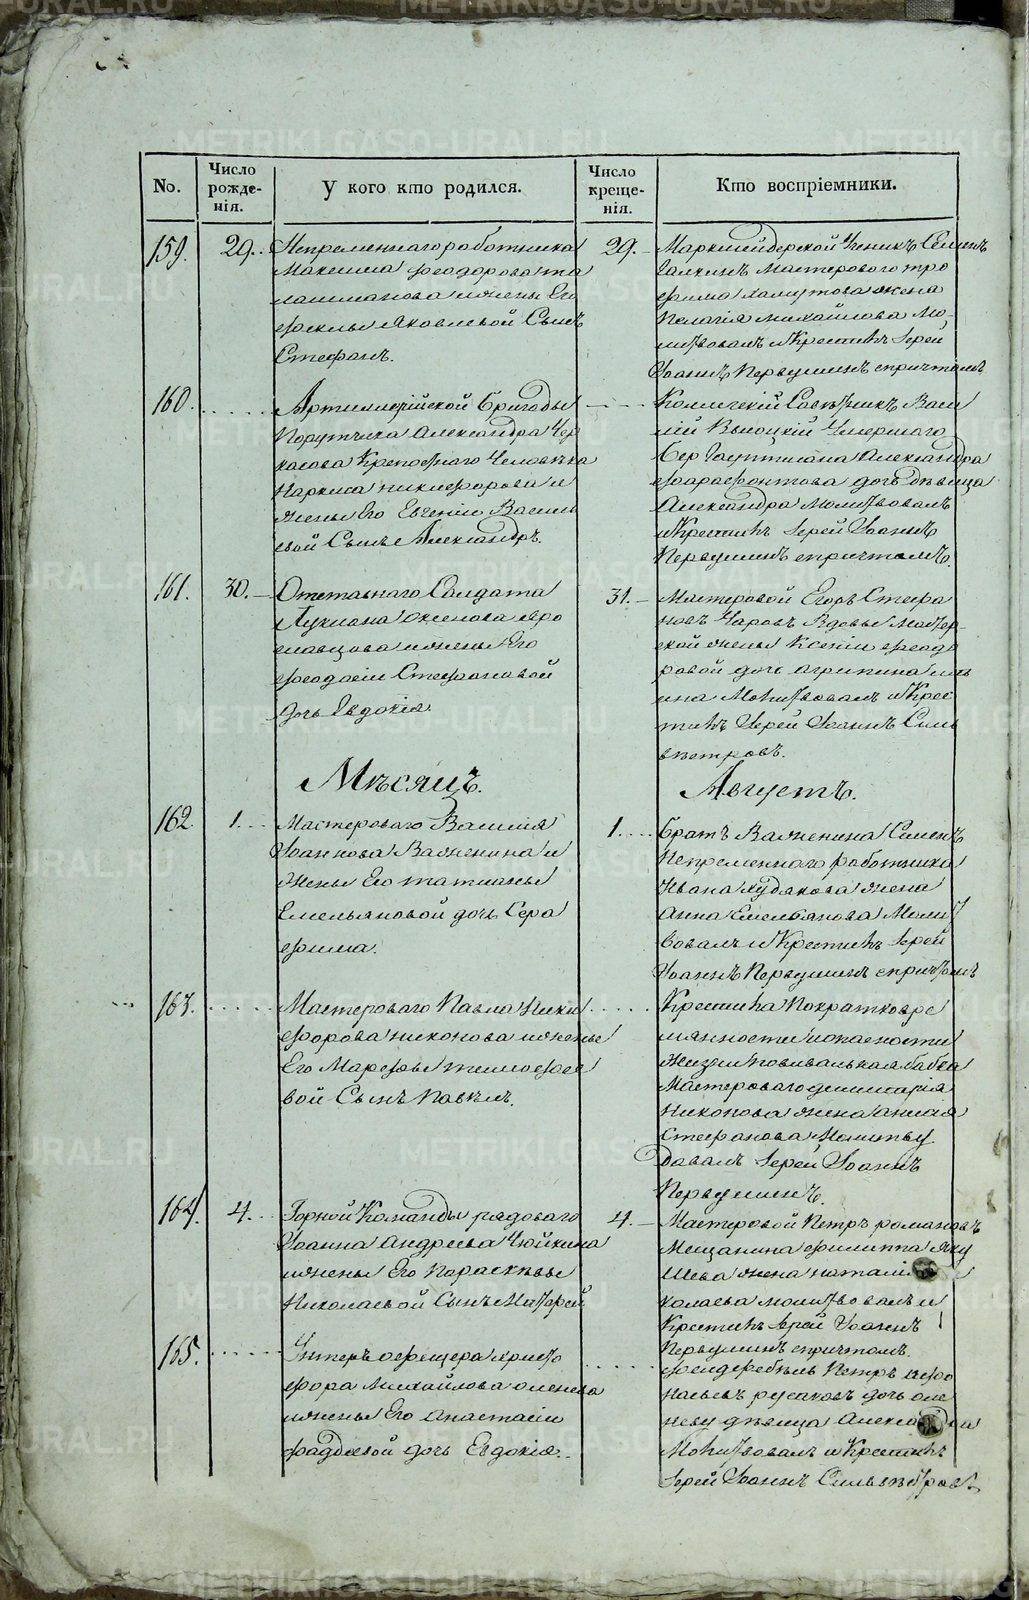 No.
Число рожде-нія.
У кого кто родился.
Число креще-нія.
Кто воспріемники.
159.
29.
Непременнаго работника
Максима Феодорова та
лашманова ижены Его
Феклы Яковлевой Сынъ
Стефанъ.
29.
Маркшейдерской Ученикъ Семенъ
Галкинъ Мастероваго тро
фима халутова жена
Пелагія михайлова Мо-
литвовалъ иКрестилъ Іерей
Іоаннъ Первушинъ спричтомъ
160.
Артиллерійской Бригады
Порутчика Александра Чер
касова Крепоснаго Человѣка
Наркиса никифорова и
жены Его Евгеніи Василь
евой Сынъ Александръ.
Коллежскій Совѣтникъ Васи
лій Высоцкій Умершаго
Бергауптмана Александра
фарафонтова дочь дѣвица
Александра молитвовалъ
иКрестилъ Іерей Іоаннъ
Первушинъ спричтомъ.
161.
30.
Отставнаго Солдата
Лукиана Аксенова яро
славцова ижены Его
феодосіи Стефановой
дочь Евдокія.
31.
Мастеровой Егоръ Стефа
новъ Чаровъ Вдовы Мастер
ской жены Ксеніи феодо
ровой дочь агрипина
Молитвовалъ иКрес
тилъ Іерей Іоаннъ Силь
вѣстровъ.
Мѣсяцъ.
Августъ.
162
1.
Мастероваго Василія
Іоаннова Важенина и
жены Его татианы
Емельяновой дочь Сера
фима.
1.
братъ Важенина Семенъ
Непременнаго работника
Ивана худякова жена
анна Емельянова Молит
вовалъ иКрестилъ Іерей
Іоаннъ Первушинъ спричтомъ
163.
Мастероваго Павла Ники
форова никонова иженъ
Его Марфы тимофее
вой Сынъ Павелъ.
Крестила пократковре
мянности иопасности
жизни повивальная бабка
Мастероваго
Никонова жена анисія
Стефанова Молитву
давалъ Іерей Іоаннъ
Первушинъ.
164.
4.
Горной Команды рядоваго
Іоанна Андреева Чюйкина
ижены Его Параскѣвы
Николаевой Сынъ Матфей
4.
Мастеровой Петръ романовъ
Мещанина филиппа Яку
шева жена натал
колаева молитвовалъ и
Крестилъ Іерей Іоаннъ
Первушинъ спричтомъ.
165.
Унтеръ офицера христо
фора Михайлова оленева
ижены Его анастасіи
фадѣевой дочь Евдокія.
Петръ
русаковъ дочь оле
неву дѣвица Алекса
Молитвовалъ иКрестилъ
Іерей Іоаннъ Сильвѣстровъ.
METRIKI.GASO-URAL.RU